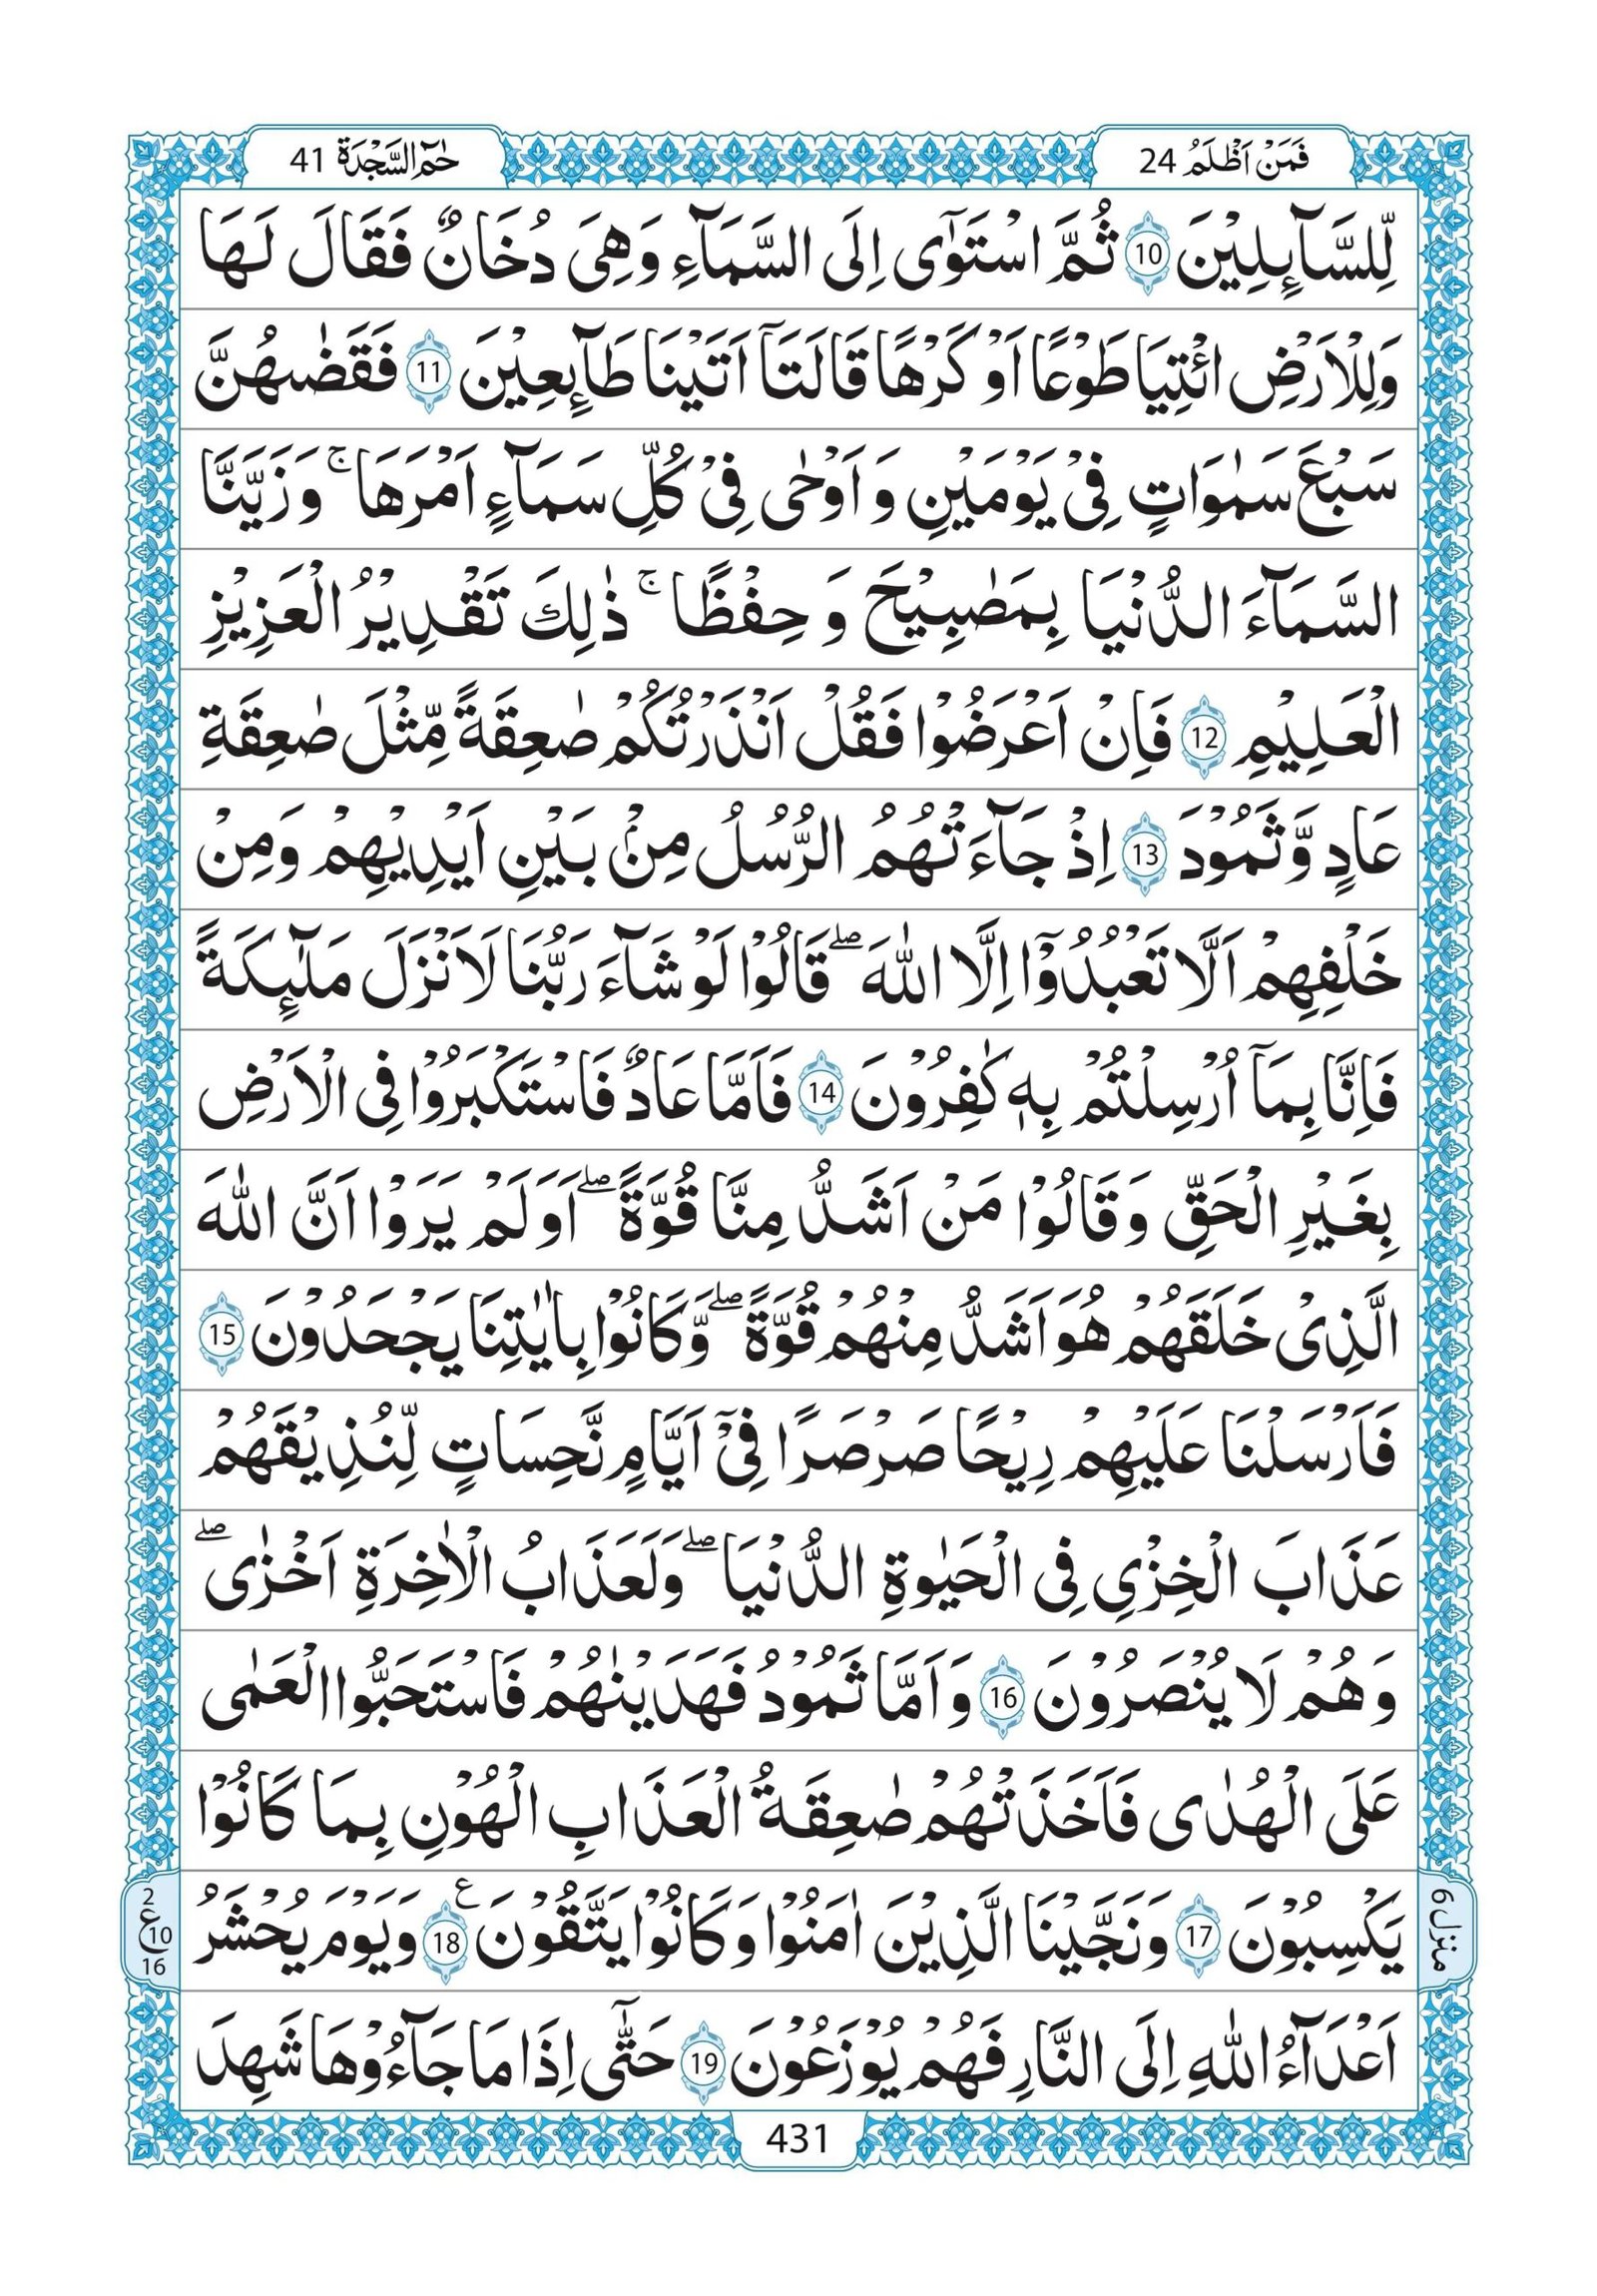 فَمَنْ اَظْلَمُ 24
حٰمٓ السَّجْدَة 41
لِّلسَّآىِٕلِيْنَ 10 ثُمَّ اسْتَوٰٓى اِلَى السَّمَآءِ وَهِىَ دُخَانٌ فَقَالَ لَهَا
وَلِلْاَرْضِ ائْتِيَا طَوْعًا اَوْ كَرْهًا قَالَتَآ اَتَيْنَا طَآىِٕعِيْنَ 11 فَقَضٰىهُنَّ
سَبْعَ سَمٰوَاتٍ فِىْ يَوْمَيْنِ وَ اَوْحٰى فِىْ كُلِّ سَمَآءٍ اَمْرَهَا ۚ وَ زَيَّنَّا
السَّمَآءَ الدُّنْيَا بِمَصٰبِيْحَ وَ حِفْظًا ۚ ذٰلِكَ تَقْدِيْرُ الْعَزِيْزِ
الْعَلِيْمِ 12 فَاِنْ اَعْرَضُوْا فَقُلْ اَنْذَرْتُكُمْ صٰعِقَةً مِّثْلَ صٰعِقَةِ
عَادٍ وَّ ثَمُوْدَ 13 اِذْ جَآءَتْهُمُ الرُّسُلُ مِنْۢ بَيْنِ اَيْدِيْهِمْ وَمِنْ
خَلْفِهِمْ اَلَّا تَعْبُدُوْٓا اِلَّا اللّٰهَ ۖ قَالُوْا لَوْ شَآءَ رَبُّنَا لَاَنْزَلَ مَلٰٓىِٕكَةً
فَاِنَّا بِمَآ اُرْسِلْتُمْ بِهٖ كٰفِرُوْنَ 14 فَاَمَّا عَادٌ فَاسْتَكْبَرُوْا فِى الْاَرْضِ
بِغَيْرِ الْحَقِّ وَ قَالُوْا مَنْ اَشَدُّ مِنَّا قُوَّةً ۖ اَوَلَمْ يَرَوْا اَنَّ اللّٰهَ
الَّذِىْ خَلَقَهُمْ هُوَ اَشَدُّ مِنْهُمْ قُوَّةً ۖ وَّكَانُوْا بِاٰيٰتِنَا يَجْحَدُوْنَ 15
فَاَرْسَلْنَا عَلَيْهِمْ رِيْحًا صَرْصَرًا فِىْٓ اَيَّامٍ نَّحِسَاتٍ لِّنُذِيْقَهُمْ
عَذَابَ الْخِزْىِ فِى الْحَيٰوةِ الدُّنْيَا ۖ وَلَعَذَابُ الْاٰخِرَةِ اَخْزٰى ۖ
وَهُمْ لَا يُنْصَرُوْنَ 16 وَ اَمَّا ثَمُوْدُ فَهَدَيْنٰهُمْ فَاسْتَحَبُّوا الْعَمٰى
عَلَى الْهُدٰى فَاَخَذَتْهُمْ صٰعِقَةُ الْعَذَابِ الْهُوْنِ بِمَا كَانُوْا
يَكْسِبُوْنَ 17 وَنَجَّيْنَا الَّذِيْنَ اٰمَنُوْا وَكَانُوْا يَتَّقُوْنَ ع 18 وَيَوْمَ يُحْشَرُ
اَعْدَآءُ اللّٰهِ اِلَى النَّارِ فَهُمْ يُوْزَعُوْنَ 19 حَتّٰٓى اِذَا مَا جَآءُوْهَا شَهِدَ
منزل 6
2
ع 10
16
431